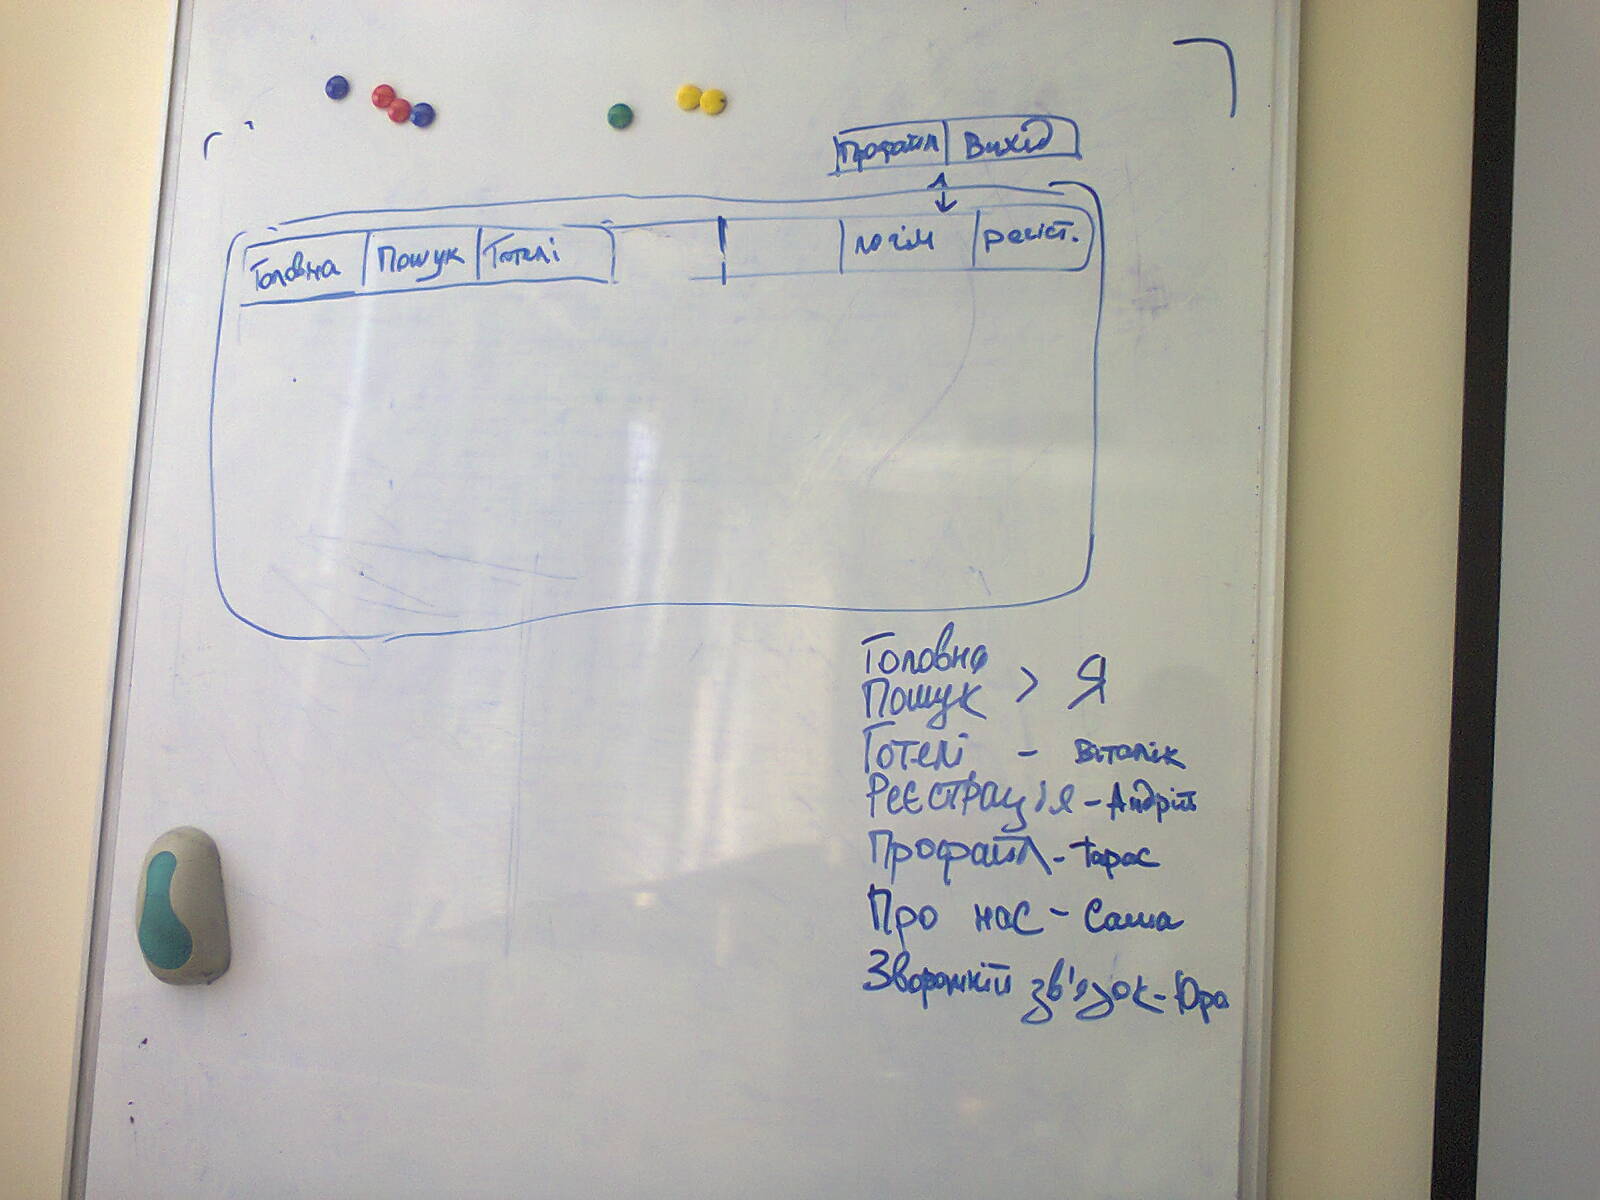 Профайл Вихід
Головна Пошук Готелі логін реєст.
Головна
Пошук > Я
Готелі - Віталік
Реєстрація - Андрій
Профайл - Тарас
Про нас - Саша
Зворотній зв'язок - Юра